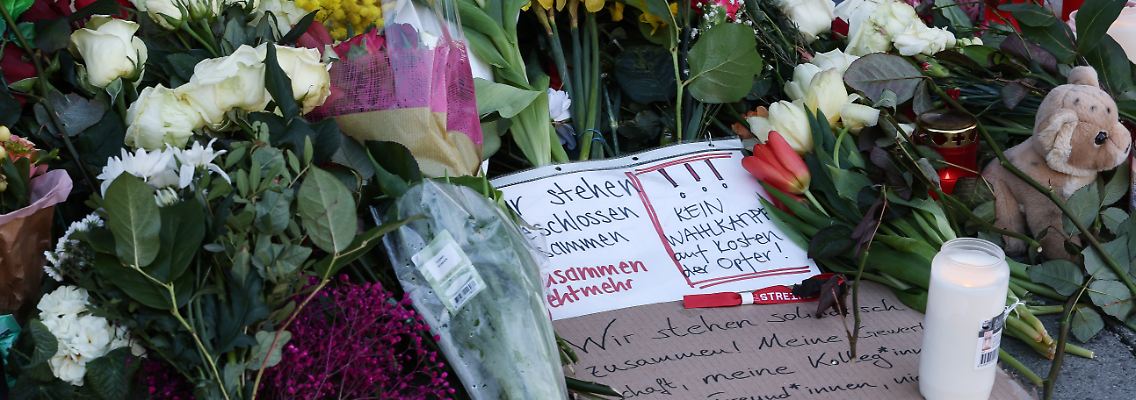 stehen
schlossen
sammen
usammen
ehtmehr
!!!
KEIN
WAHLKAMPF
auf Kosten
der Opfer!
STREIK
Wir stehen
zusammen! Meine Gewerk
schaft, meine Kolleg*inn
reund*innen,